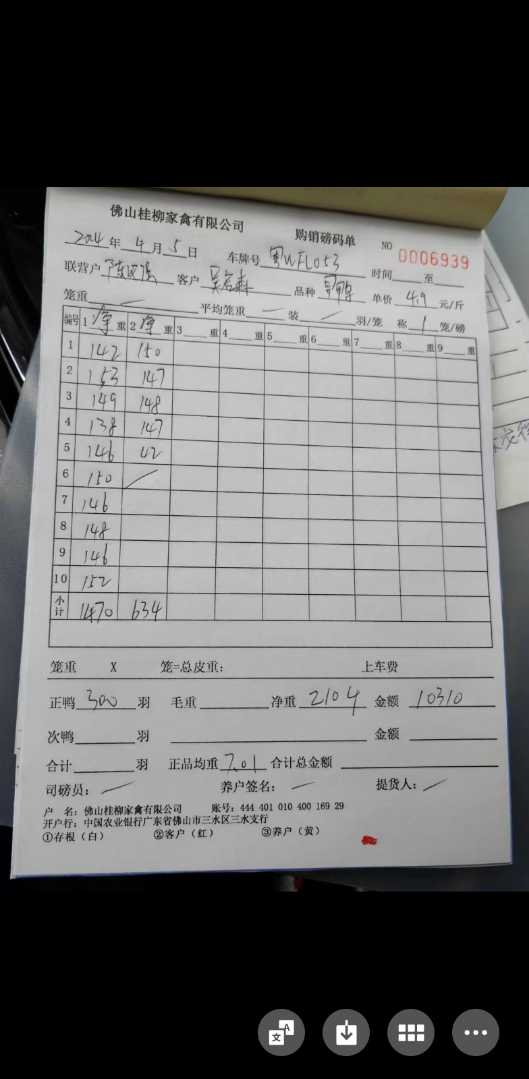 佛山桂柳家禽有限公司
购销磅码单 NO 0006939
2024年 4月 5日 车牌号 粤WFL053 时间 至
联营户 客户 品种 单价 4.9 元/斤
笼重 — 平均笼重 — 装 / 羽/笼 称 1 笼/磅
编号 1 净 重 2 净 重 3 重 4 重 5 重 6 重 7 重 8 重 9 重
1 142 150
2 153 147
3 149 148
4 138 147
5 146 42
6 150 /
7 146
8 148
9 146
10 152
小计 1470 634
笼重 X 笼=总皮重: 上车费
正鸭 300 羽 毛重 净重 2104 金额 10310
次鸭 羽 金额
合计 羽 正品均重 7.01 合计总金额
司磅员: 养户签名: 提货人:
户 名: 佛山桂柳家禽有限公司 账号: 444 401 010 400 169 29
开户行: 中国农业银行广东省佛山市三水区三水支行
①存根(白) ②客户(红) ③养户(黄)